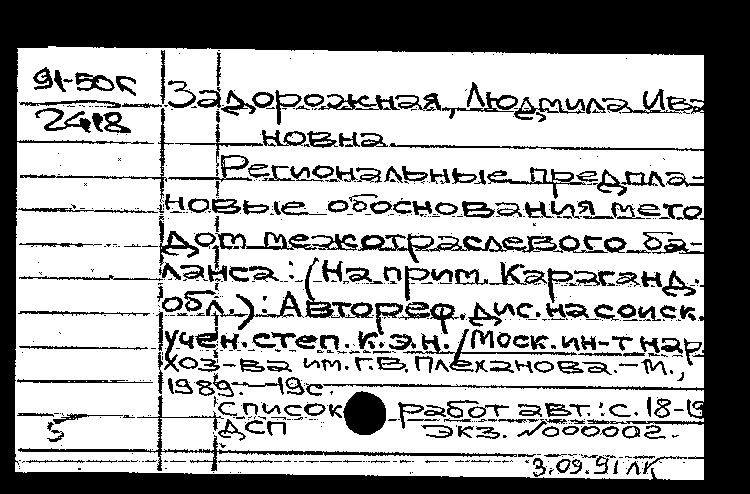 91-50к
2418
Задорожная, Людмила Ива
новна.
Региональные предпла-
новые обоснования мето
дом межотраслевого ба-
ланса: (На прим. Караганд.
обл.): Автореф. дис. на соиск.
учен. степ. к.э.н. / Моск. ин-т нар.
хоз-ва им. Г.В. Плеханова. - М.,
1989. - 19с.
Список работ авт.: с. 18-19
5 ДСП Экз. №000002.
3.09.91 ЛК